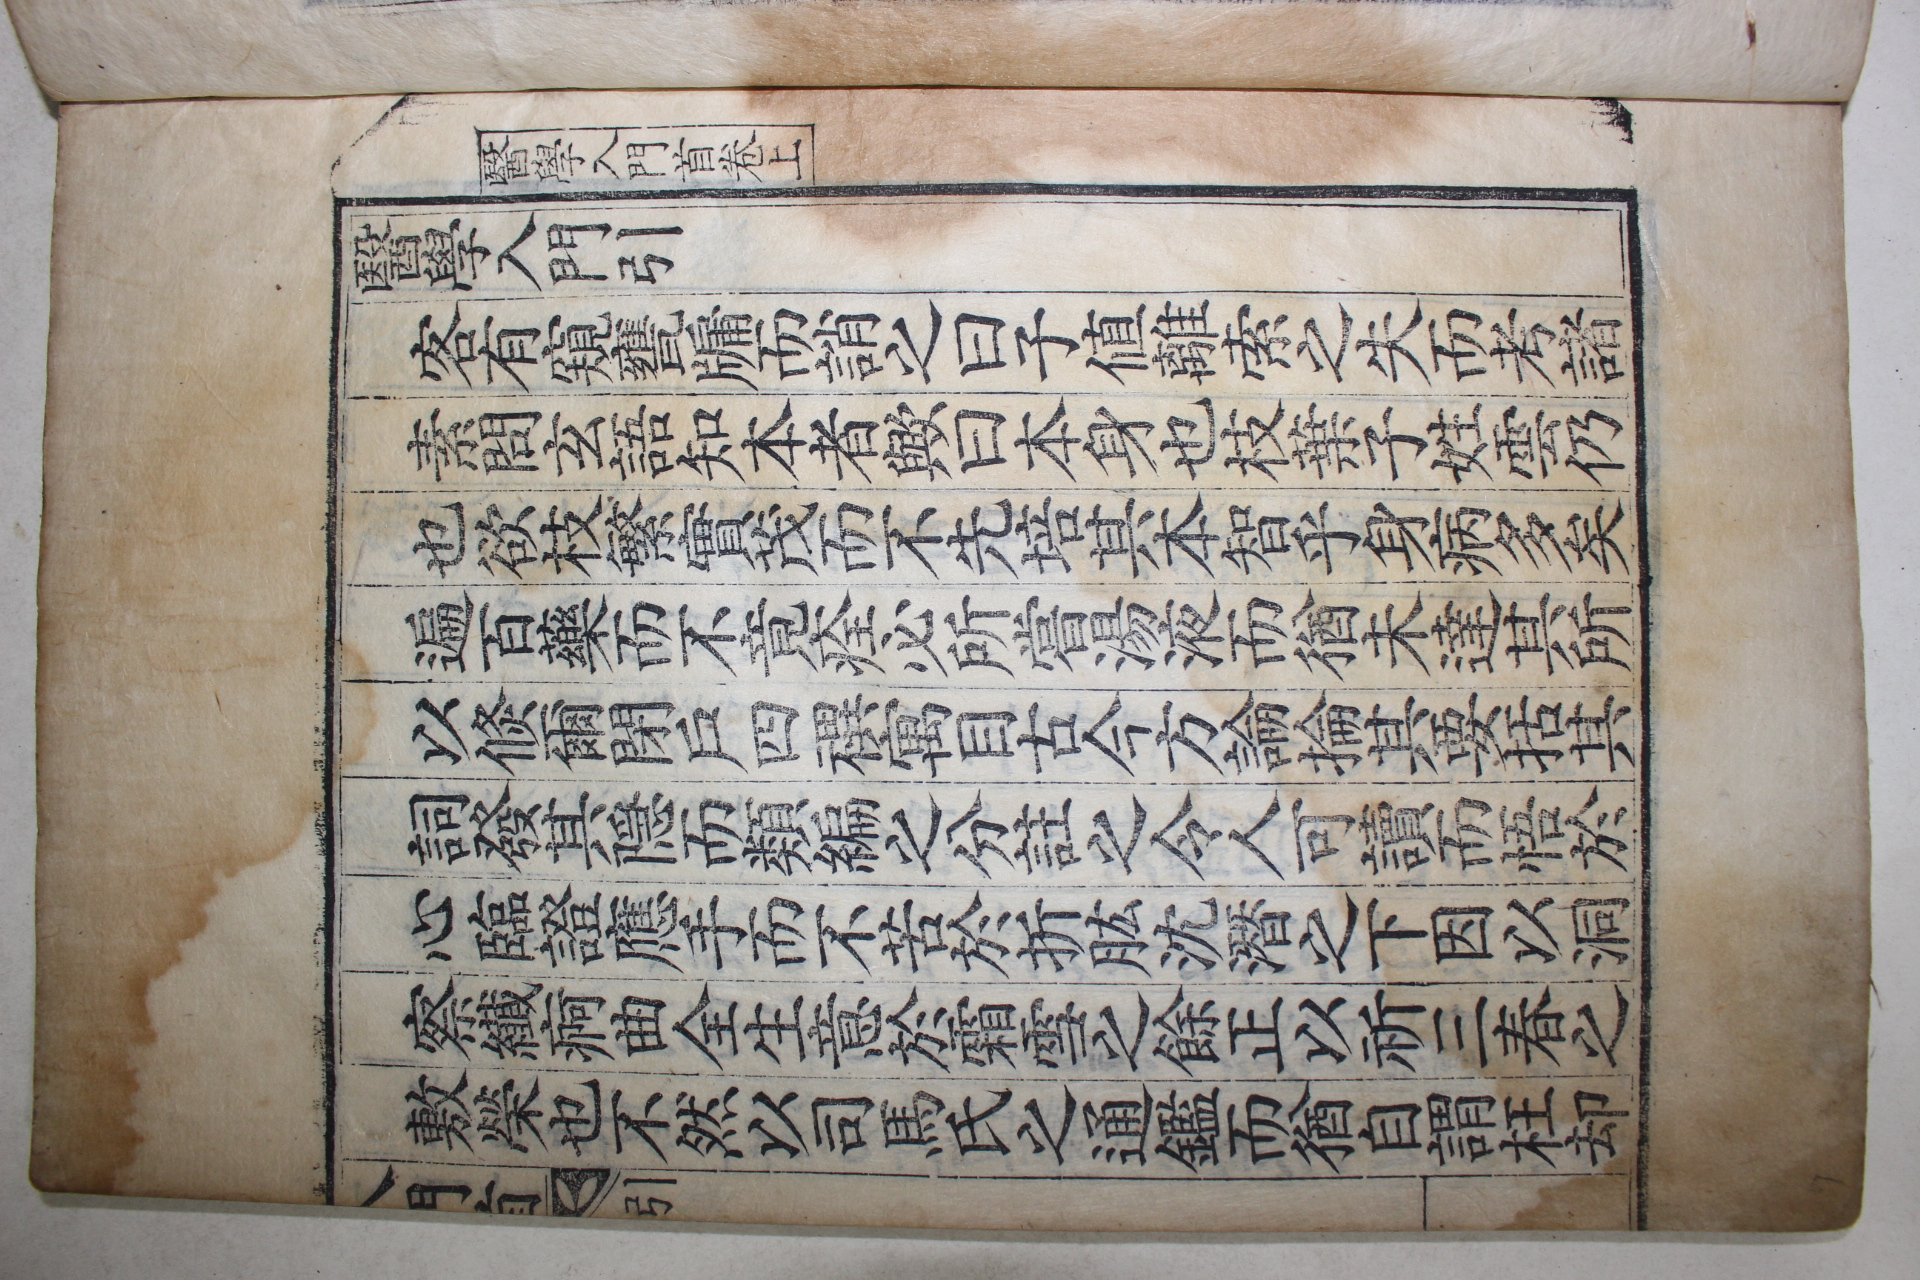 醫學入門首卷上
醫學入門引
客有窺甕牖而誚之曰子値離索之失而考諸
素問玄語知本者歟曰本身也枝葉子姓雲仍
也欲枝繁實茂而不先培其本智乎身病多矣
遍百藥而不竟痊必所嘗湯液而猶未達其所
以倐爾閉戶四祺寓目古今方論掄其要括其
詞發其隱而類編之分註之令人可讀而悟於
心臨證應手而不苦於折肱沈潛之下因以洞
察纎疴曲全生意於霜雪之餘正以祈三春之
敷榮也不然以司馬氏之通鑑而猶自謂枉却
引